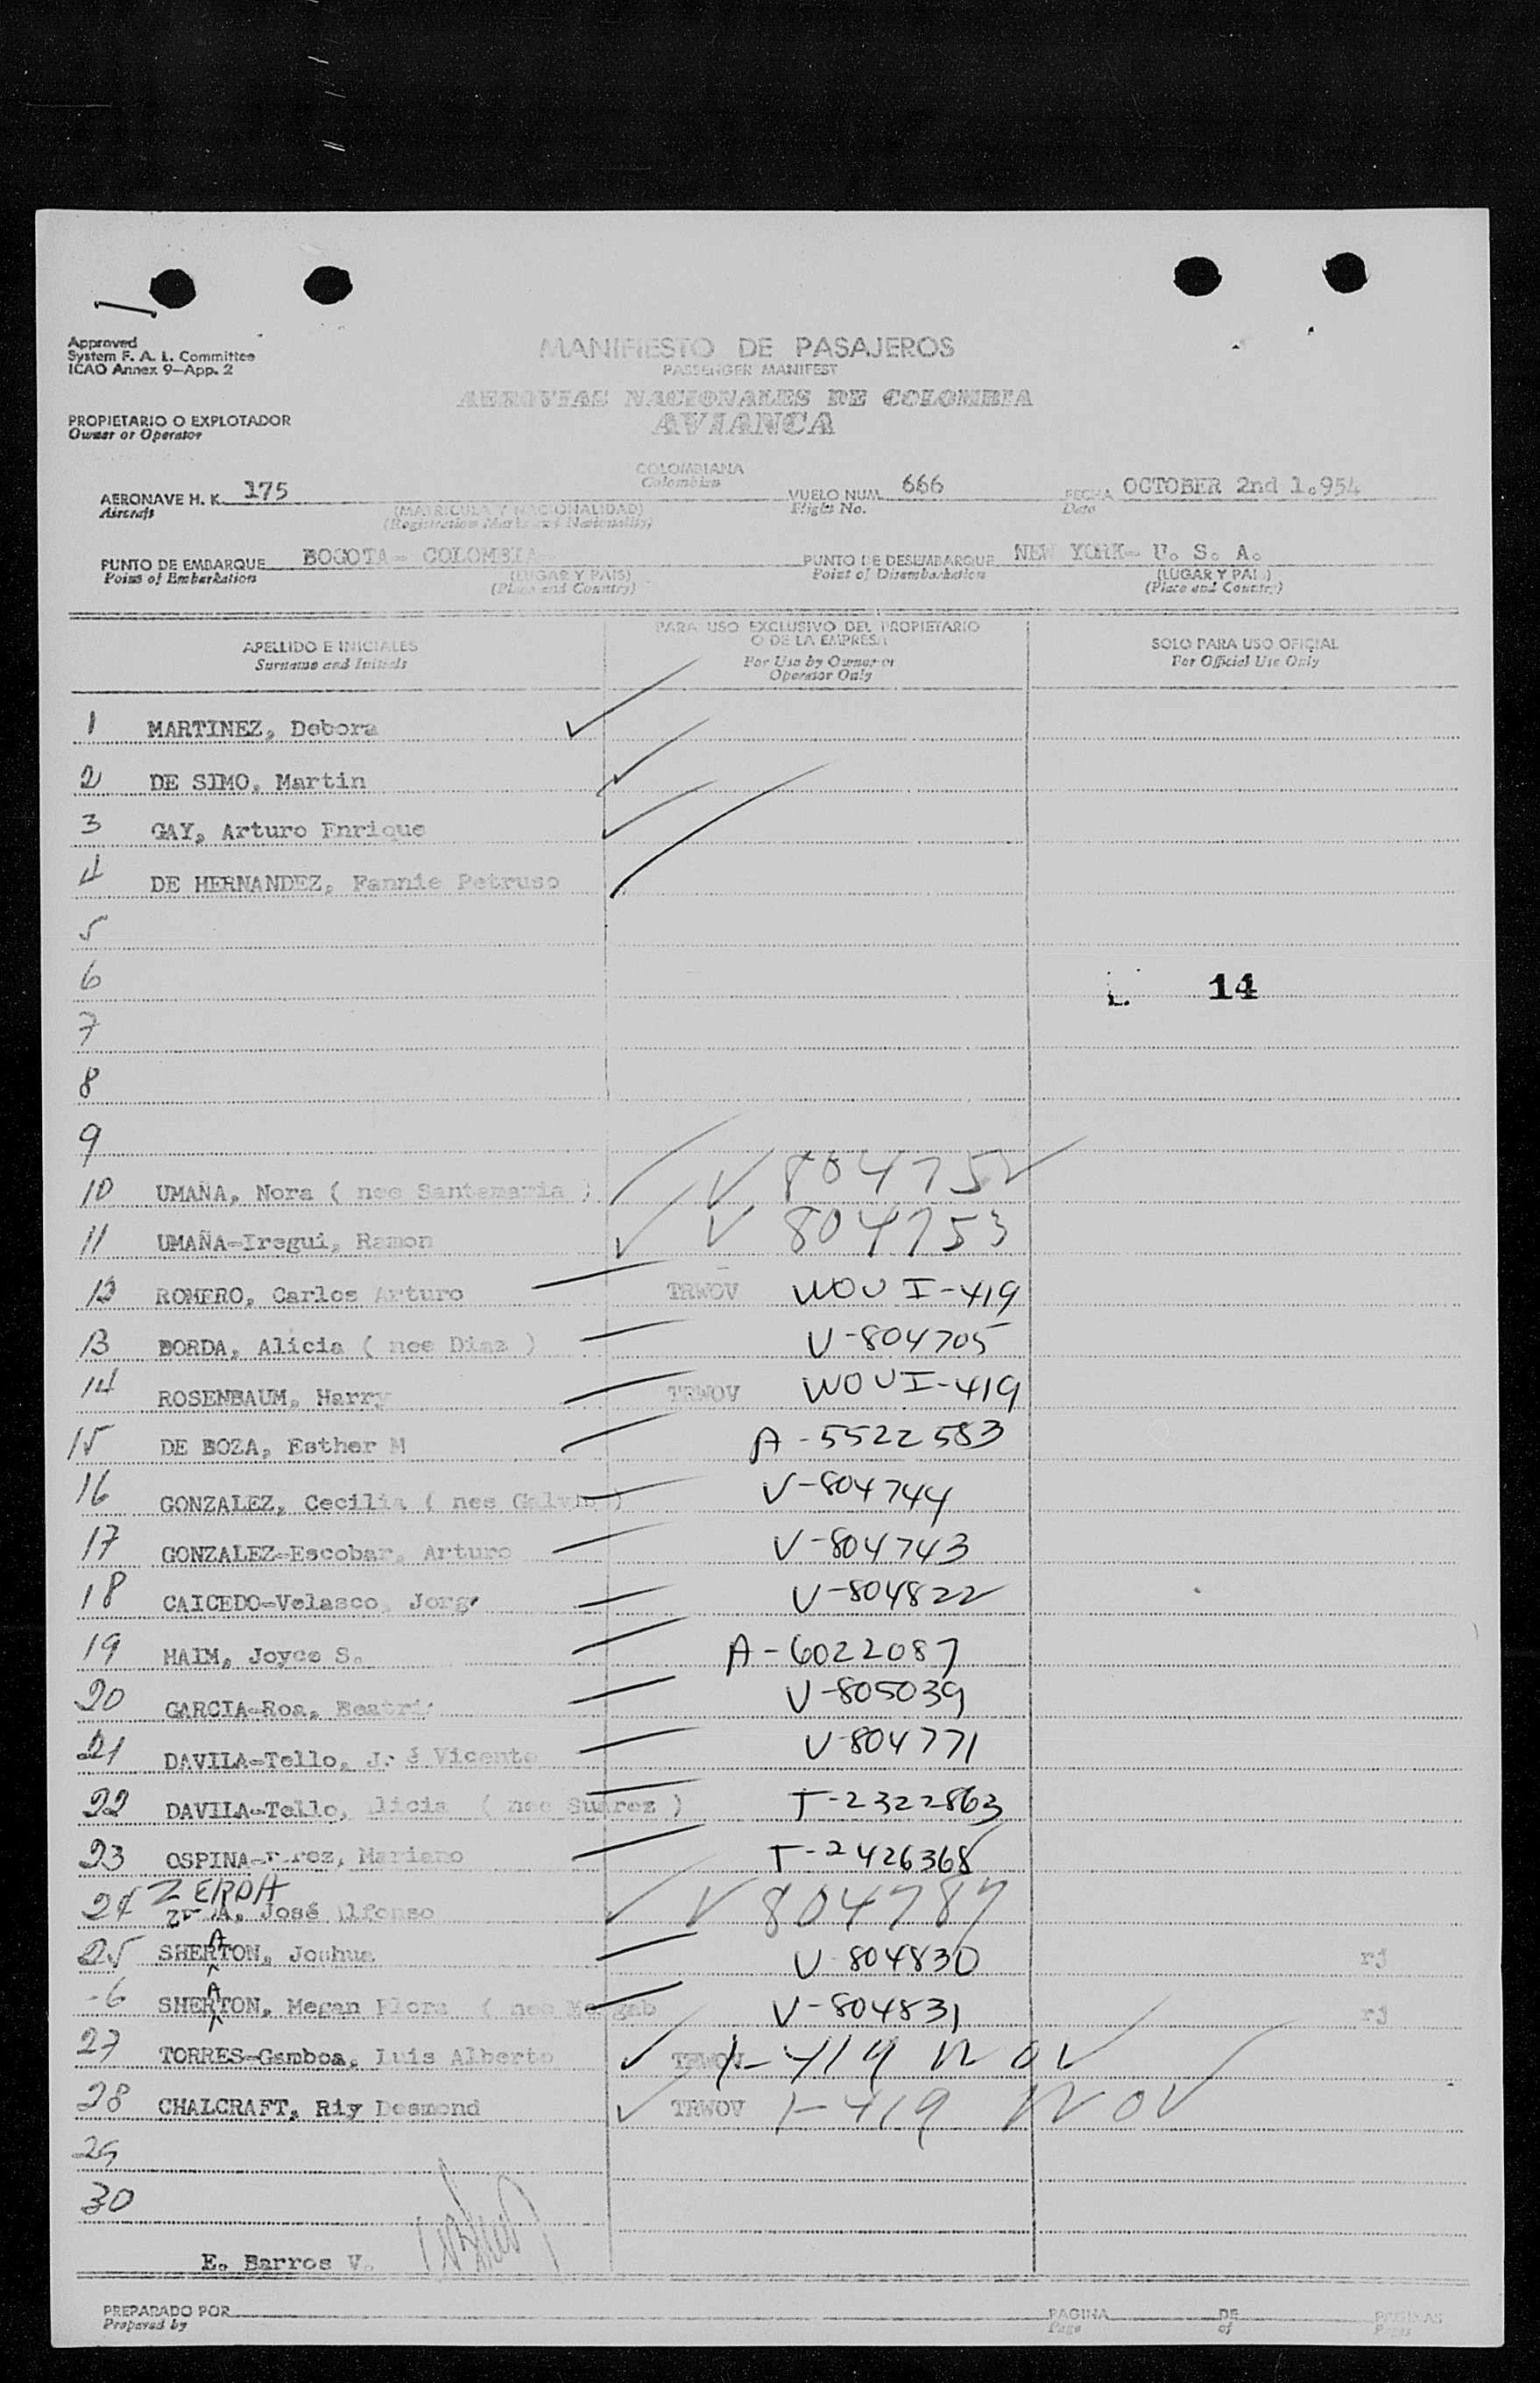 Approved
System F. A. L. Committee
ICAO Annex 9-App. 2
MANIFIESTO DE PASAJEROS
PASSENGER MANIFEST
AEROVIAS NACIONALES DE COLOMBIA
AVIANCA
PROPIETARIO O EXPLOTADOR
Owner or Operator
COLOMBIANA
Colombian
AERONAVE H. K. 175 VUELO NUM. 666 FECHA OCTOBER 2nd 1.954
Aircraft (MATRICULA Y NACIONALIDAD) Flight No. Date
(Registration Marks and Nationality)
PUNTO DE EMBARQUE BOGOTA- COLOMBIA- PUNTO DE DESEMBARQUE NEW YORK- U. S. A.
Point of Embarkation (LUGAR Y PAIS) Point of Disembarkation (LUGAR Y PAIS)
(Place and Country) (Place and Country)
APELLIDO E INICIALES PARA USO EXCLUSIVO DEL PROPIETARIO O DE LA EMPRESA SOLO PARA USO OFICIAL
Surname and Initials For Use by Owner or Operator Only For Official Use Only
1 MARTINEZ, Debora
2 DE SIMO, Martin
3 GAY, Arturo Enrique
4 DE HERNANDEZ, Fannie Petruso
5
6 14
7
8
9
10 UMAÑA, Nora ( nee Santamaria ) V 804752
11 UMAÑA-Iregui, Ramon V 804753
12 ROMERO, Carlos Arturo TRWOV WOV I-419
13 BORDA, Alicia ( nee Diaz ) V-804705
14 ROSENBAUM, Harry TRWOV WOV I-419
15 DE BOZA, Esther M A-5522583
16 GONZALEZ, Cecilia ( nee ) V-804744
17 GONZALEZ-Escobar, Arturo V-804743
18 CAICEDO-Velasco, Jorg V-804822
19 HAIM, Joyce S. A-6022087
20 GARCIA-Roa, Beatri V-805039
21 DAVILA-Tello, J. é Vicente V-804771
22 DAVILA-Tello, licia ( nee Suarez ) T-2322863
23 OSPINA- rez, Mariano T-2426368
24 ZERDA
José Alfonso V 804787
25 SHERATON, Joshua V-804830 rj
-6 SHERATON, Megan Flora ( nee V-804831 rj
27 TORRES-Gamboa, Luis Alberto TRWOV I-419 WOV
28 CHALCRAFT, Riy Desmond TRWOV I-419 WOV
29
30
E. Barros V.
PREPARADO POR PAGINA DE PAGINAS
Prepared by Page of Pages